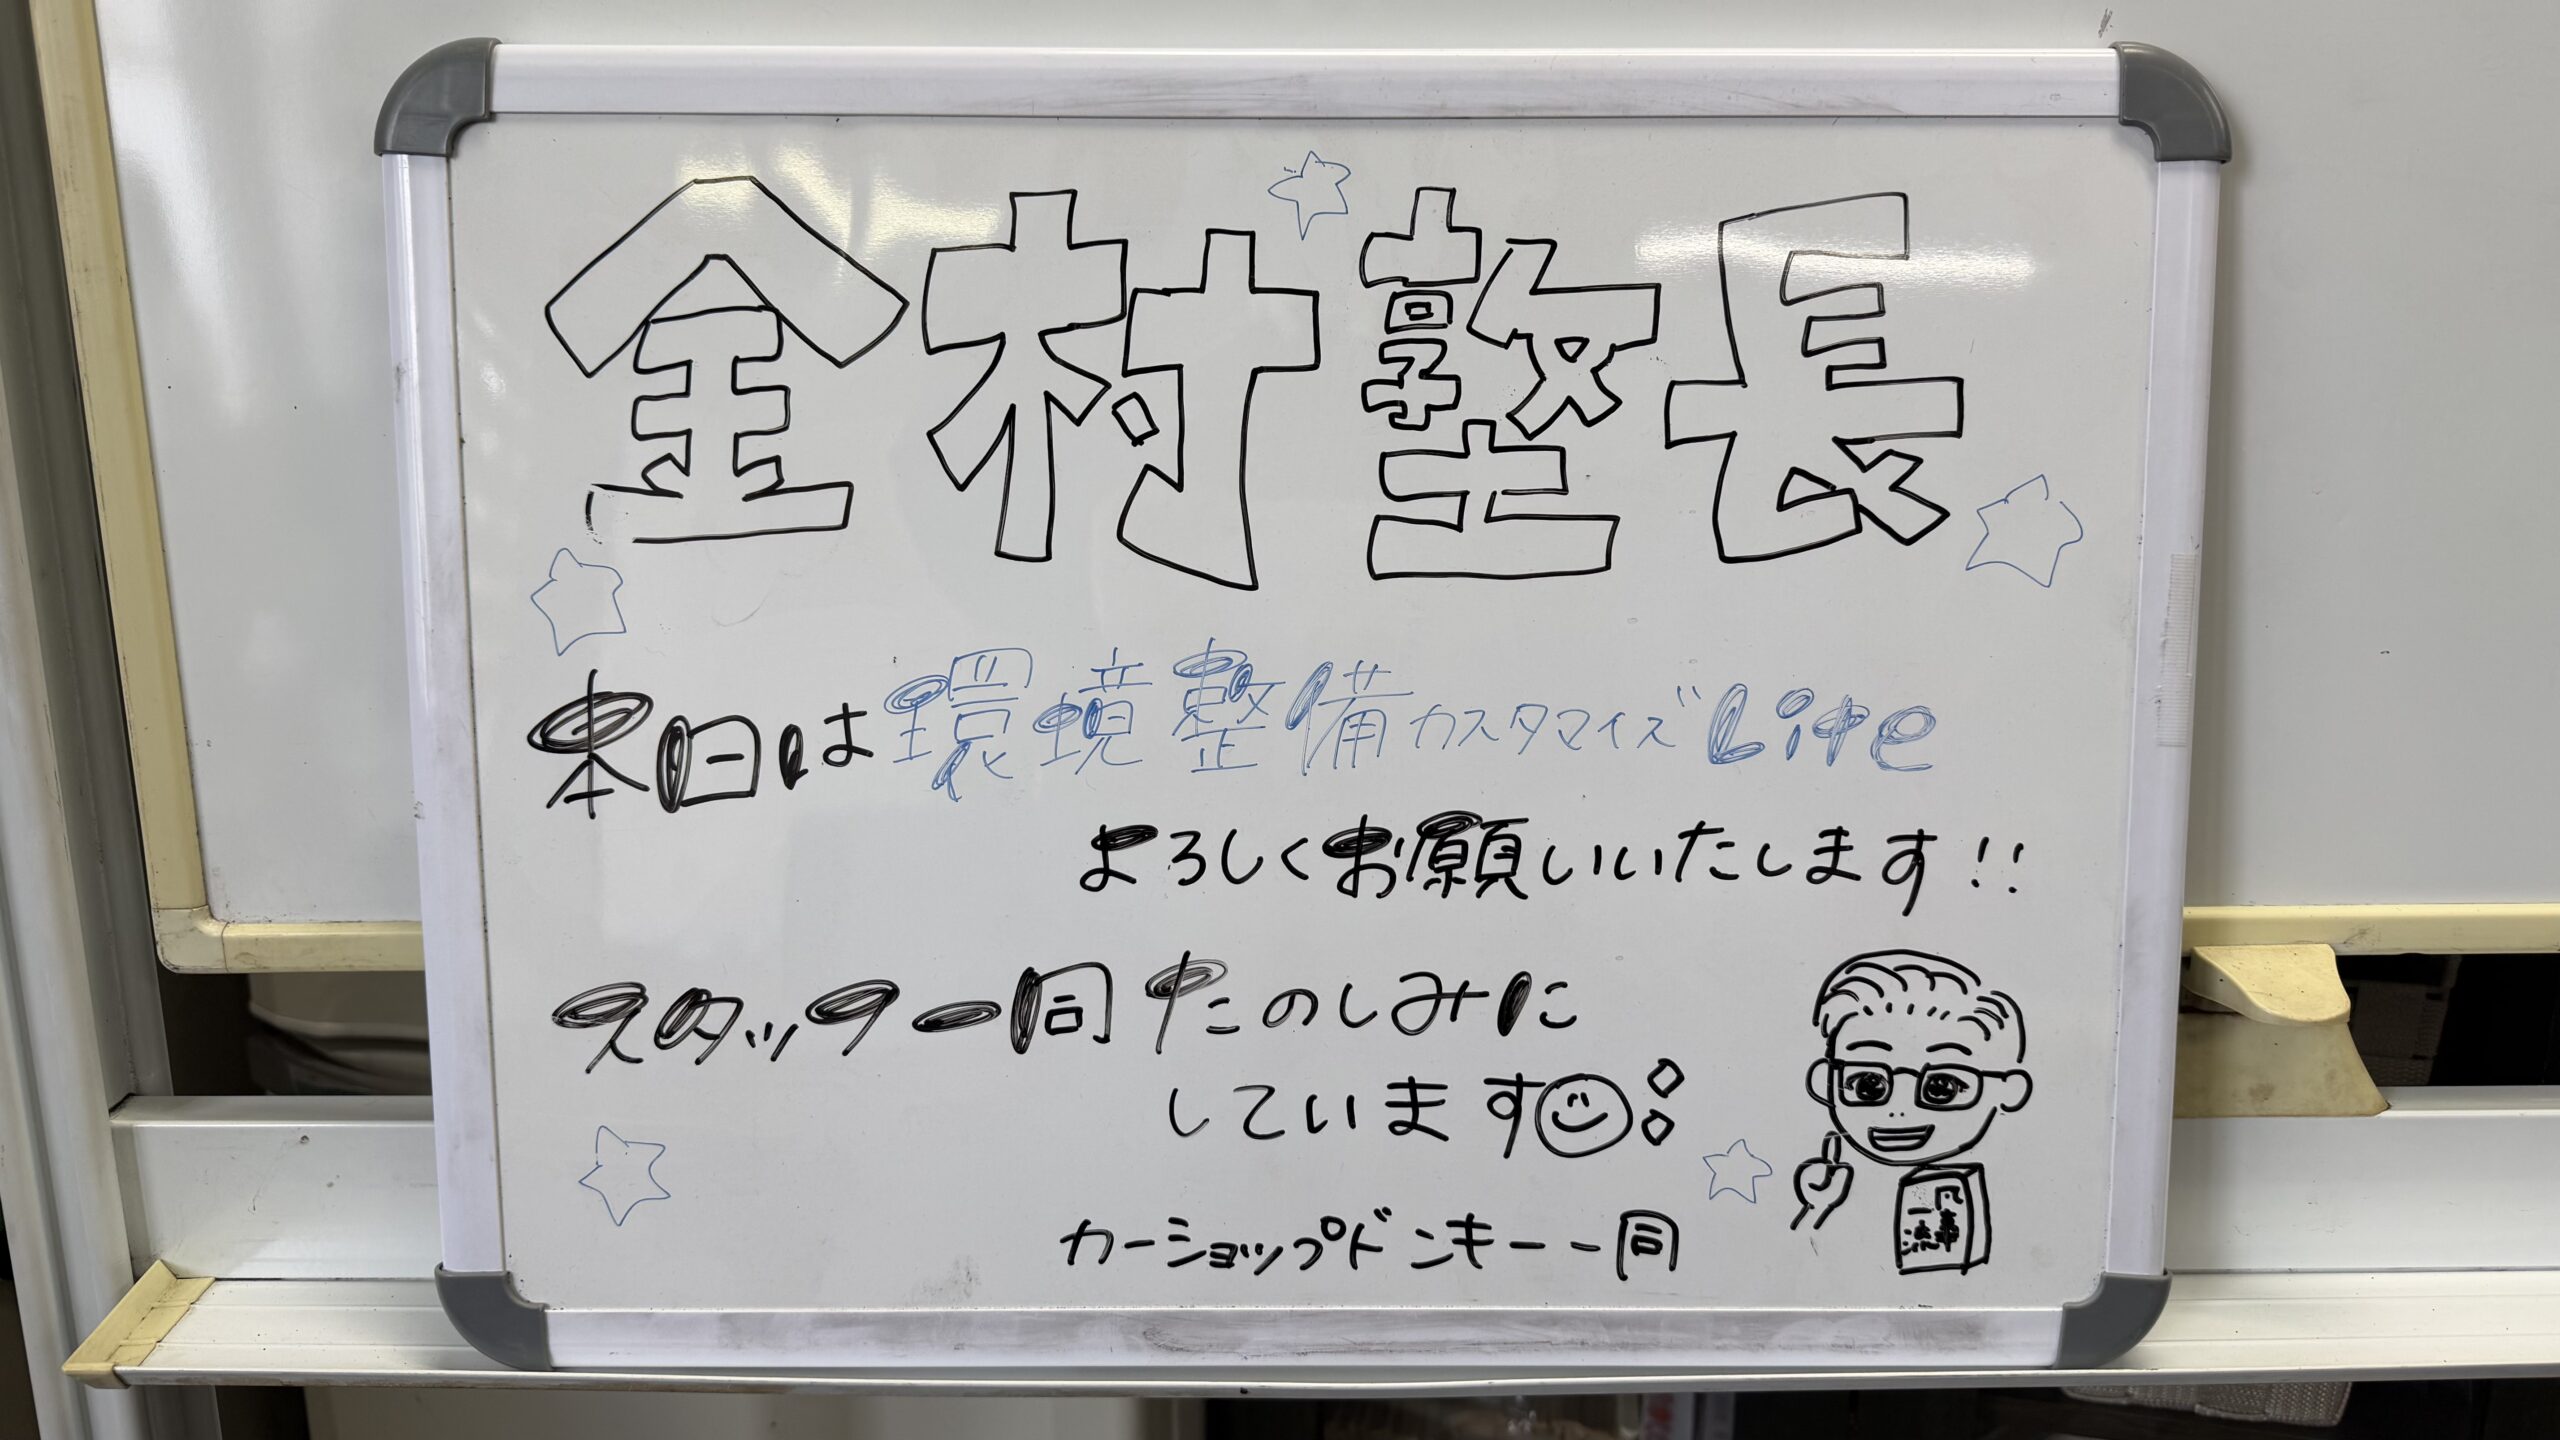 金村塾長
本日は環境整備カスタマイズLive
よろしくお願いいたします!!
スタッフ一同たのしみに
しています
凡事
一流
カーショップドンキー一同